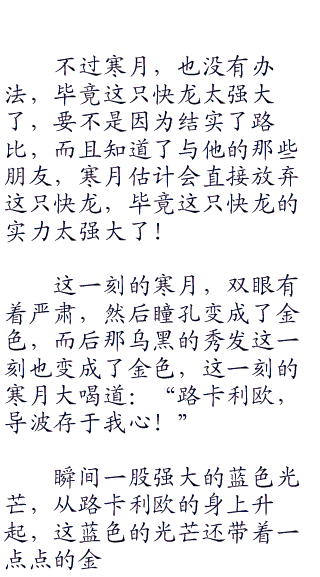 不过寒月，也没有办
法，毕竟这只快龙太强大
了，要不是因为结实了路
比，而且知道了与他的那些
朋友，寒月估计会直接放弃
这只快龙，毕竟这只快龙的
实力太强大了！
这一刻的寒月，双眼有
着严肃，然后瞳孔变成了金
色，而后那乌黑的秀发这一
刻也变成了金色，这一刻的
寒月大喝道：“路卡利欧，
导波存于我心！”
瞬间一股强大的蓝色光
芒，从路卡利欧的身上升
起，这蓝色的光芒还带着一
点点的金